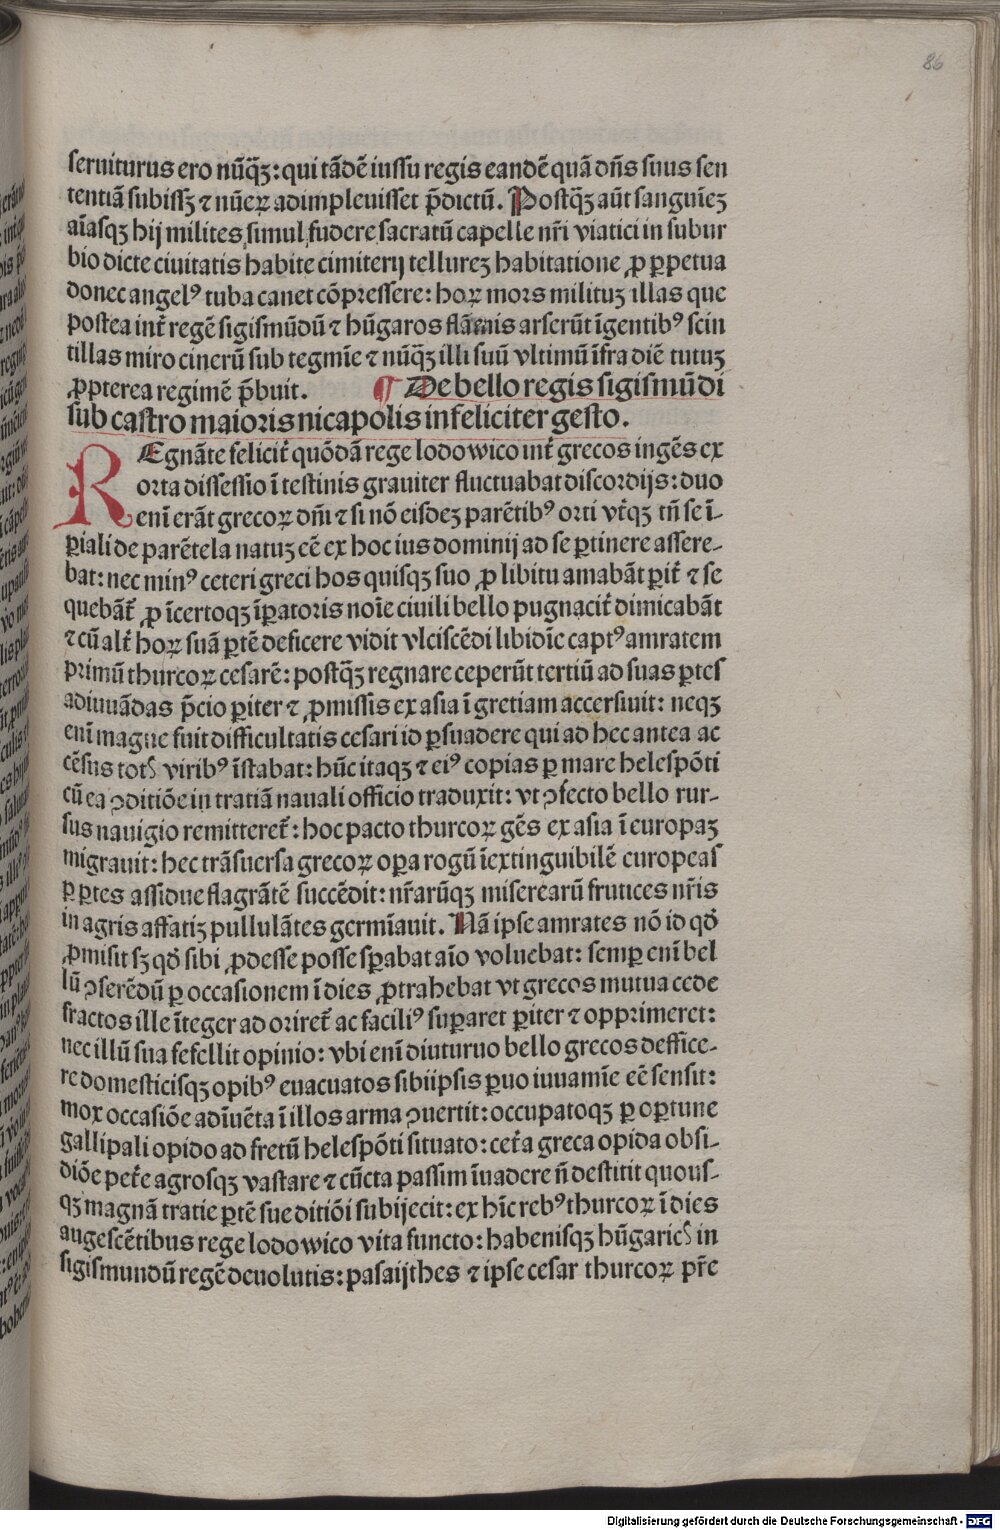 86
seruiturus ero nūq̄ꝫ: qui tādē iussu regis eandē quā dn̄s suus sen
tentiā subissꝫ ⁊ nūeꝝ adimpleuisset p̄dictū. Postq̄ꝫ aūt sanguīeꝫ
aīasqꝫ hij milites simul fudere sacratū capelle nr̄i viatici in subur
bio dicte ciuitatis habite cimiterij tellureꝫ habitatione ꝓ ꝑpetua
donec angelꝰ tuba canet cōpressere: hoꝝ mors milituꝫ illas que
postea int̄ regē sigismūdū ⁊ hūgaros flāmis arserūt īgentibꝰ scin
tillas miro cinerū sub tegmīe ⁊ nūq̄ꝫ illi suū vltimū īfra diē tutuꝫ
ꝓpterea regimē p̄buit. ¶ De bello regis sigismūdi
sub castro maioris nicapolis infeliciter gesto.
REgnāte felicit̄ quōdā rege lodowico int̄ grecos ingēs ex
orta dissessio ītestinis grauiter fluctuabat discordijs: duo
enī erāt grecoꝝ dn̄i ⁊ si nō eisdeꝫ parētibꝰ orti vt̄qꝫ tn̄ se ī-
ꝑiali de parētela natuꝫ eē ex hoc ius dominij ad se ꝑtinere assere-
bat: nec minꝰ ceteri greci hos quisqꝫ suo ꝓ libitu amabāt ꝑit̄ ⁊ se
quebāt̄ ꝓ īcertoqꝫ īꝑatoris noīe ciuili bello pugnacit̄ dimicabāt
⁊ cū alt̄ hoꝝ suā ꝑtē deficere vidit vlciscēdi libidīe captꝰ amratem
primū thurcoꝝ cesarē: postq̄ꝫ regnare ceperūt tertiū ad suas ꝑtes
adiuuādas p̄cio ꝑiter ⁊ ꝓmissis ex asia ī gretiam accersiuit: neqꝫ
enī magne fuit difficultatis cesari id ꝑsuadere qui ad hec antea ac
cēsus totꝭ viribꝰ īstabat: hūc itaqꝫ ⁊ eiꝰ copias ꝑ mare helespōti
cū ea ꝯditiōe in tratiā nauali officio traduxit: vt ꝯfecto bello rur-
sus nauigio remitteret̄: hoc pacto thurcoꝝ gēs ex asia ī europaꝫ
migrauit: hec trāsuersa grecoꝝ oꝑa rogū īextinguibilē europeas
ꝑ ꝑtes assidue flagrātē succēdit: nr̄arūqꝫ miserearū frutices nr̄is
in agris affatiꝫ pullulātes germīauit. Nā ipse amrates nō id qđ
ꝓmisit sꝫ qđ sibi ꝓdesse posse sꝑabat aīo voluebat: semꝑ enī bel
lū ꝯserēdū ꝑ occasionem ī dies ꝓtrahebat vt grecos mutua cede
fractos ille īteger adoriret̄ ac faciliꝰ suꝑaret ꝑiter ⁊ opprimeret:
nec illū sua fefellit opinio: vbi enī diuturuo bello grecos deffice-
re domesticisqꝫ opibꝰ euacuatos sibiipsis ꝑuo iuuamīe eē sensit:
mox occasiōe adīuēta ī illos arma ꝯuertit: occupatoqꝫ ꝑ oꝑtune
gallipali opido ad fretū helespōti situato: cet̄a greca opida obsi-
diōe pet̄e agrosqꝫ vastare ⁊ cūcta passim īuadere n̄ destitit quous-
qꝫ magnā tratie ꝑtē sue ditiōi subijecit: ex hīc rebꝰ thurcoꝝ ī dies
augescētibus rege lodowico vita functo: habenisqꝫ hūgaricꝭ in
sigismundū regē deuolutis: pasaijthes ⁊ ipse cesar thurcoꝝ pr̄e
Digitalisierung gefördert durch die Deutsche Forschungsgemeinschaft - DFG